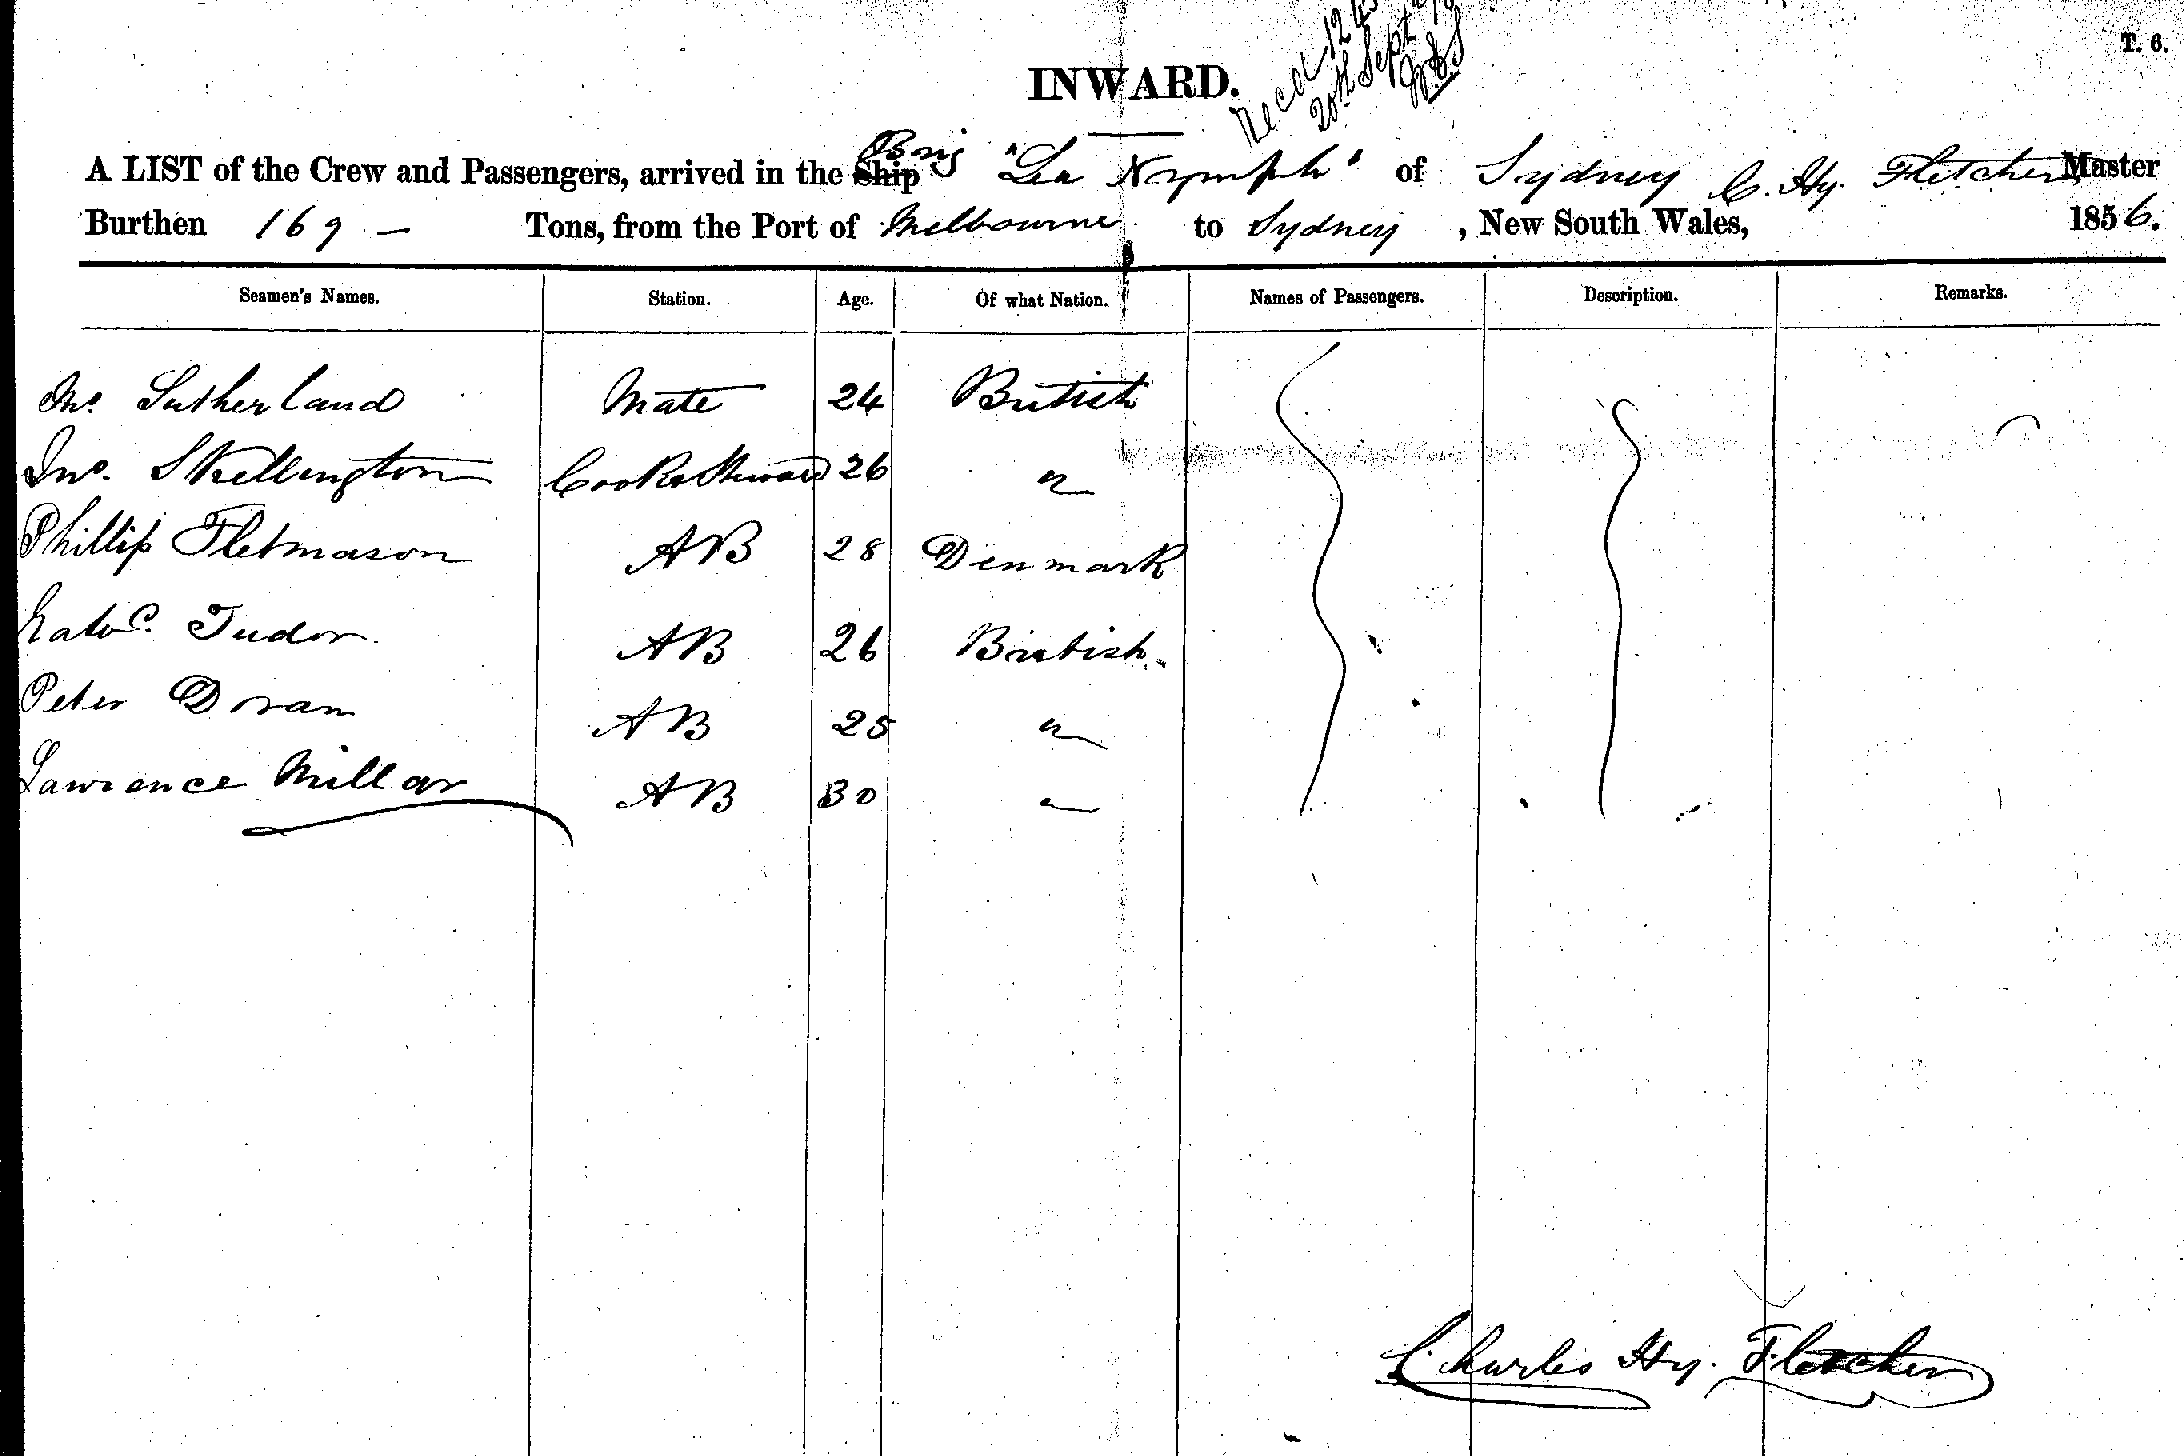 T. 6.
INWARD.
Recd 12
20th Sept
A LIST of the Crew and Passengers, arrived in the Ship Brig "Sea Nymph" of Sydney C. Hy. Fletcher Master
Burthen 169 — Tons, from the Port of Melbourne to Sydney, New South Wales, 1856.
Seamen's Names. Station. Age. Of what Nation. Names of Passengers. Description. Remarks.
Jno. Sutherland Mate 24 British
Jno. Skellington Cook & Steward 26 "
Phillip Fletmason AB 28 Denmark
Tudor. AB 26 British
Peter Doran AB 25 "
Lawrence Millar AB 30 "
Charles Hy. Fletcher